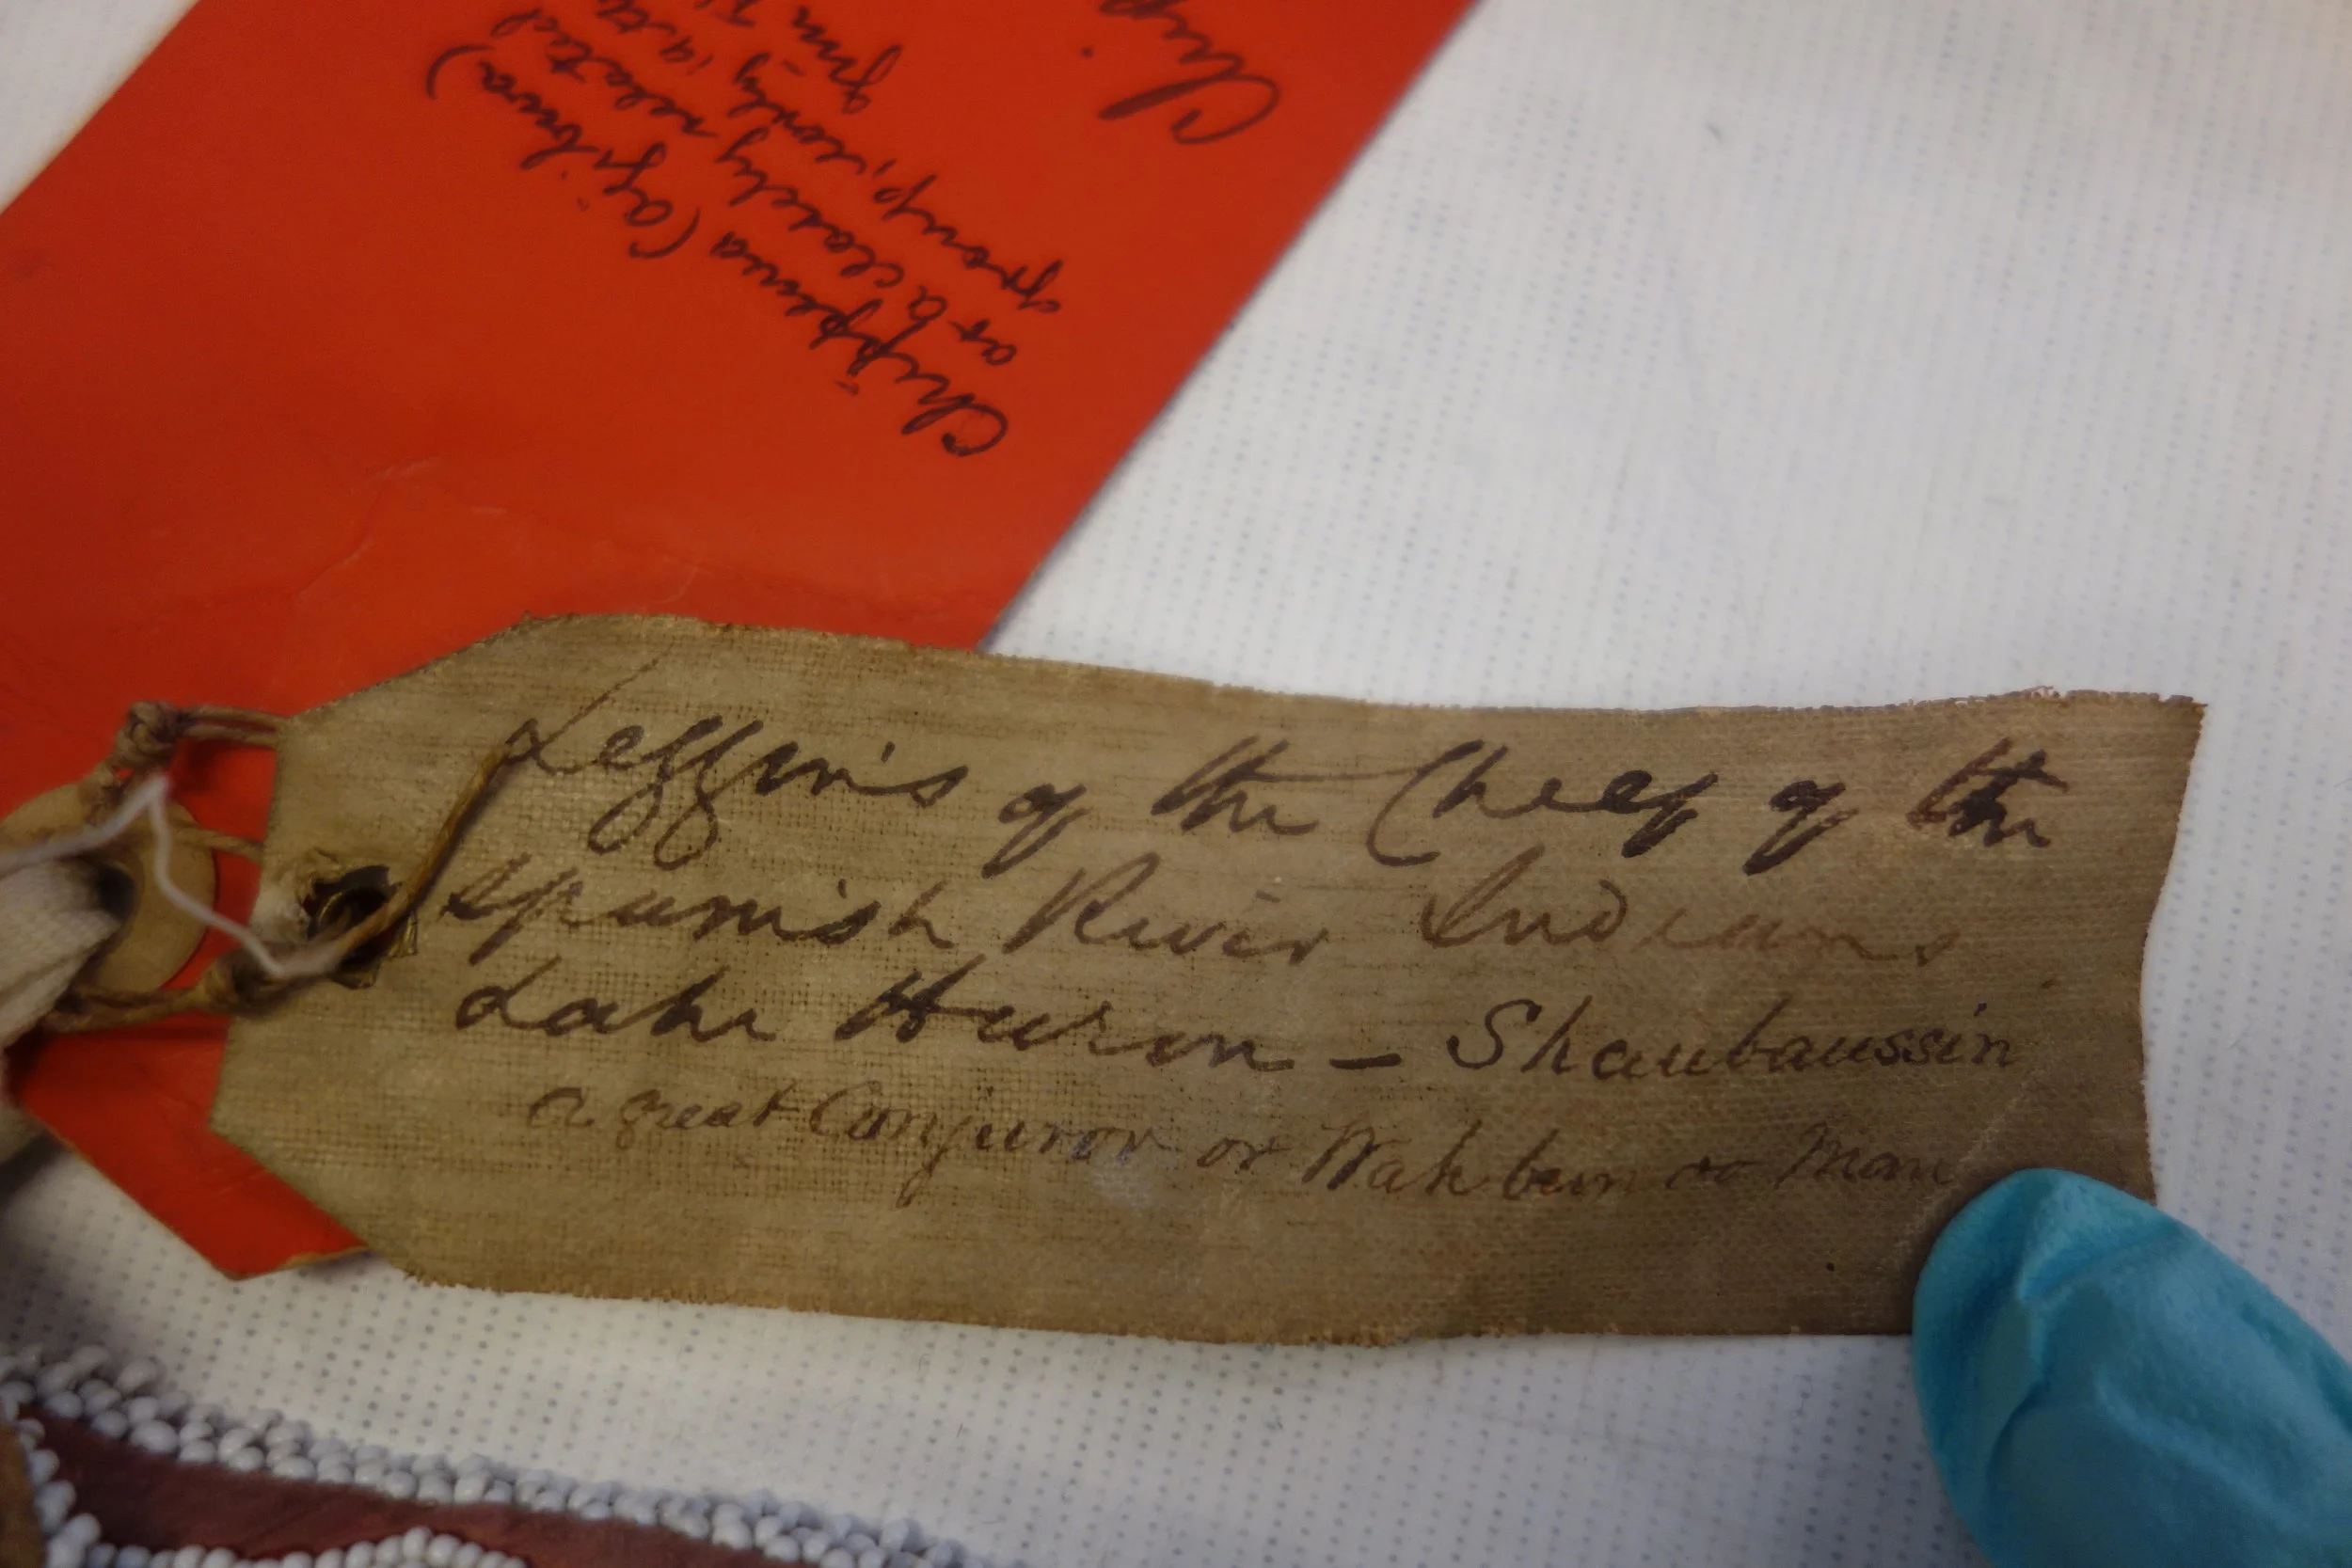 Leggin's of the Cheef of the
Spanish River Indians
Lake Huron – Shaubaussin
a great Conjuror or Wahbun oo Man
Chippewa (Ojibwa)
or a closely related
group,